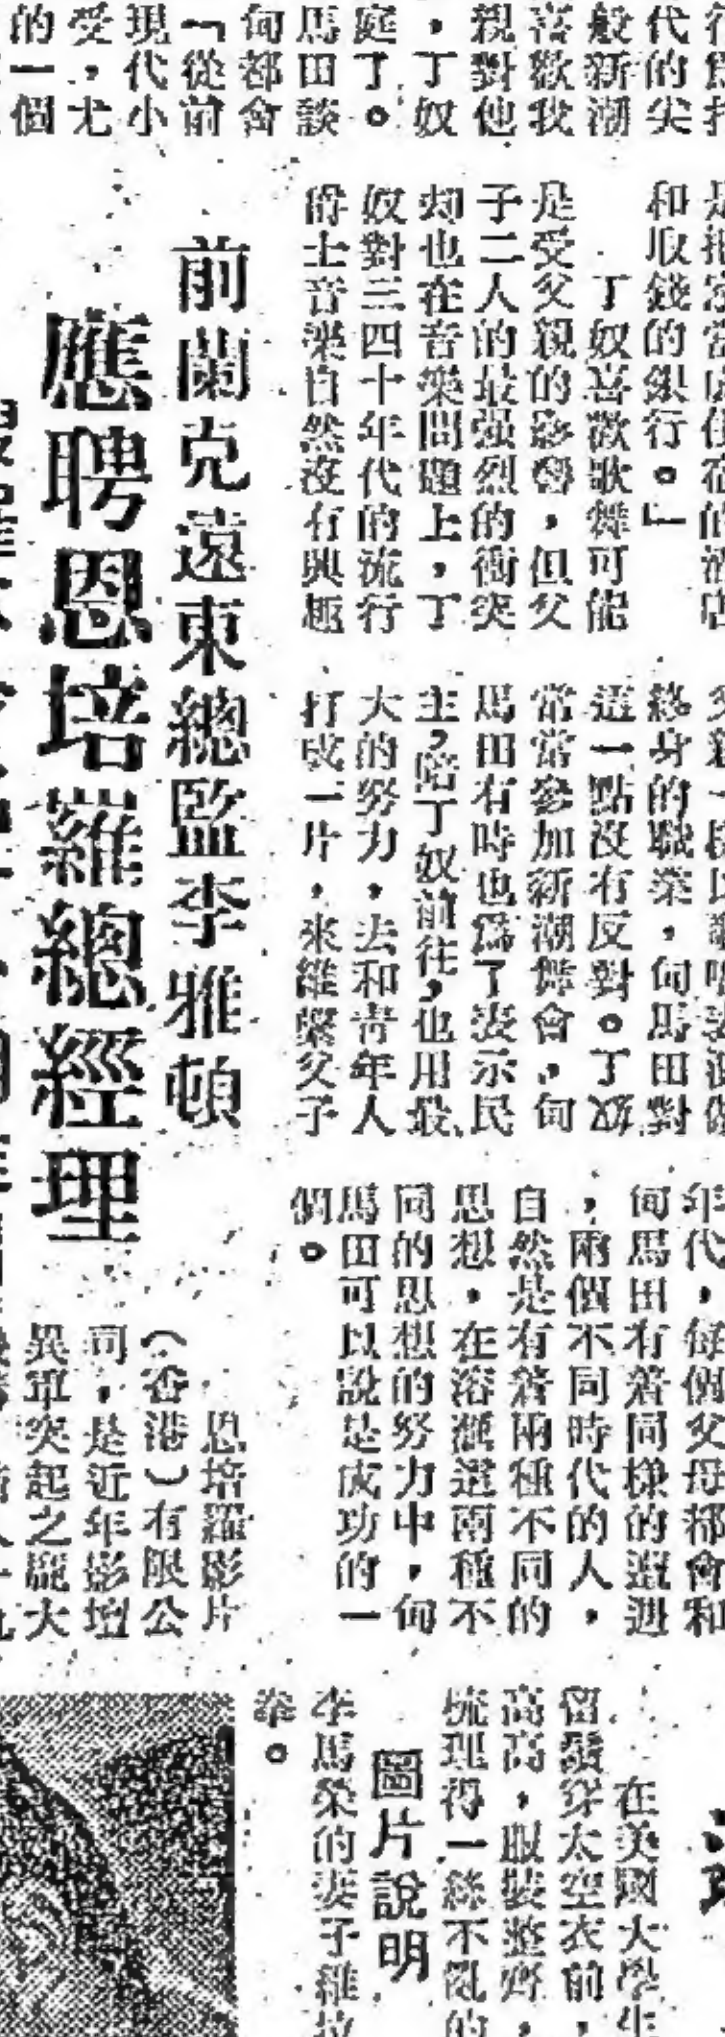 代的尖
般新潮
喜歡我
親對他
，丁奴
庭了。
馬田談
甸都會
「從前
現代小
受，尤
的一個
和取錢的銀行。」
丁奴喜歡歌舞可能
是受父親的影響，但父
子二人的最强烈的衝突
却也在音樂問題上，丁
奴對三四十年代的流行
爵士音樂自然沒有興趣
終身的職業，甸馬田對
這一點沒有反對。丁奴
常常參加新潮舞會，甸
馬田有時也爲了表示民
主，陪丁奴前往，也用最
大的努力，去和青年人
打成一片，來維繫父子
年代，每個父母都會和
甸馬田有着同樣的遭遇
，兩個不同時代的人，
自然是有着兩種不同的
思想，在溶滙這兩種不
同的思想的努力中，甸
馬田可以說是成功的一
個。
前蘭克遠東總監李雅頓
應聘恩培羅總經理
恩培羅影片
（香港）有限公
司，是近年影壇
異軍突起之龐大
在美國大學生
留髮穿太空衣前，
高高，服裝整齊，
梳理得一絲不亂的
圖片說明
李馬榮的妻子維拉
攀。